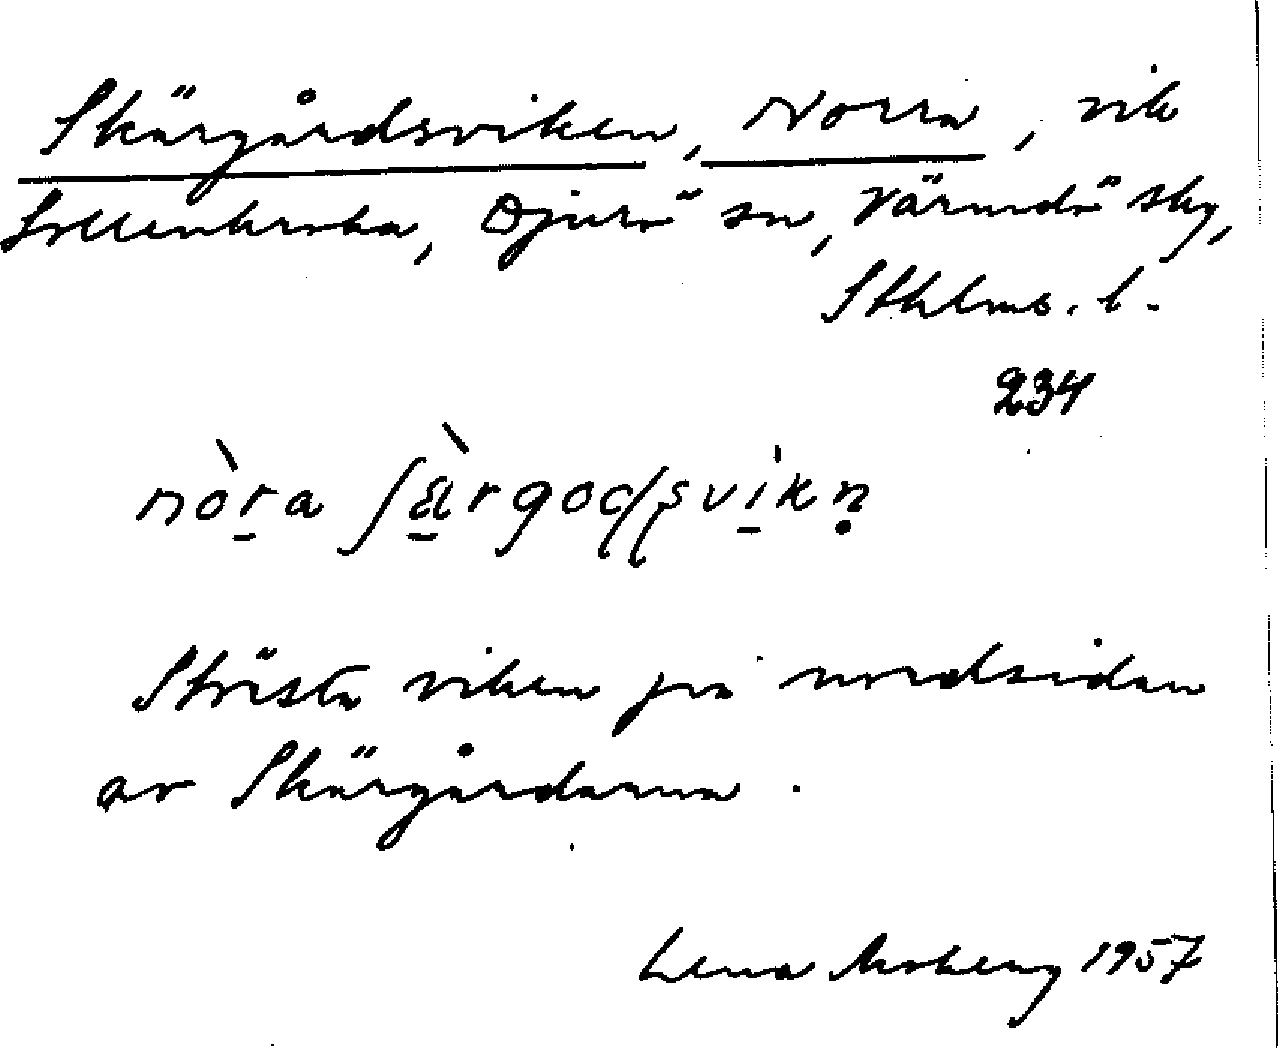 Skärgårdsviken, Norra, vik
Sollenkroka, Djurö sn, Värmdö sky,
Sthlms. l.
234
nòra ʃæ̀rgoɖʂvikṇ
Största viken på nordsidan
av Skärgårdarna.
Lena Moberg 1957